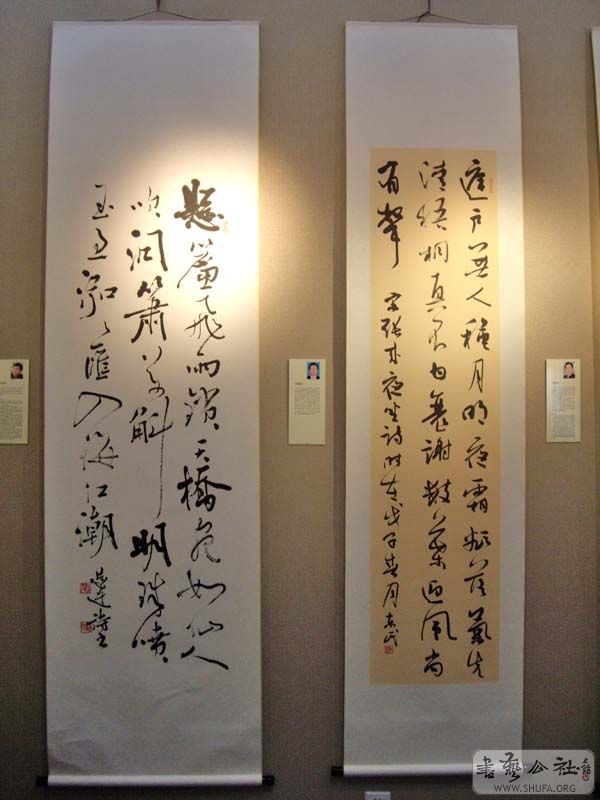 庭戶無人秋月明夜霜欲落氣先
清梧桐真不甘衰謝數葉迎風尚
有聲 宋張耒夜坐詩時在戊子春月
懸簾飛雨鎖天橋宛如仙人
吹洞簫萬斛明珠噴
玉 匯入海江潮
書藝公社
WWW.SHUFA.ORG